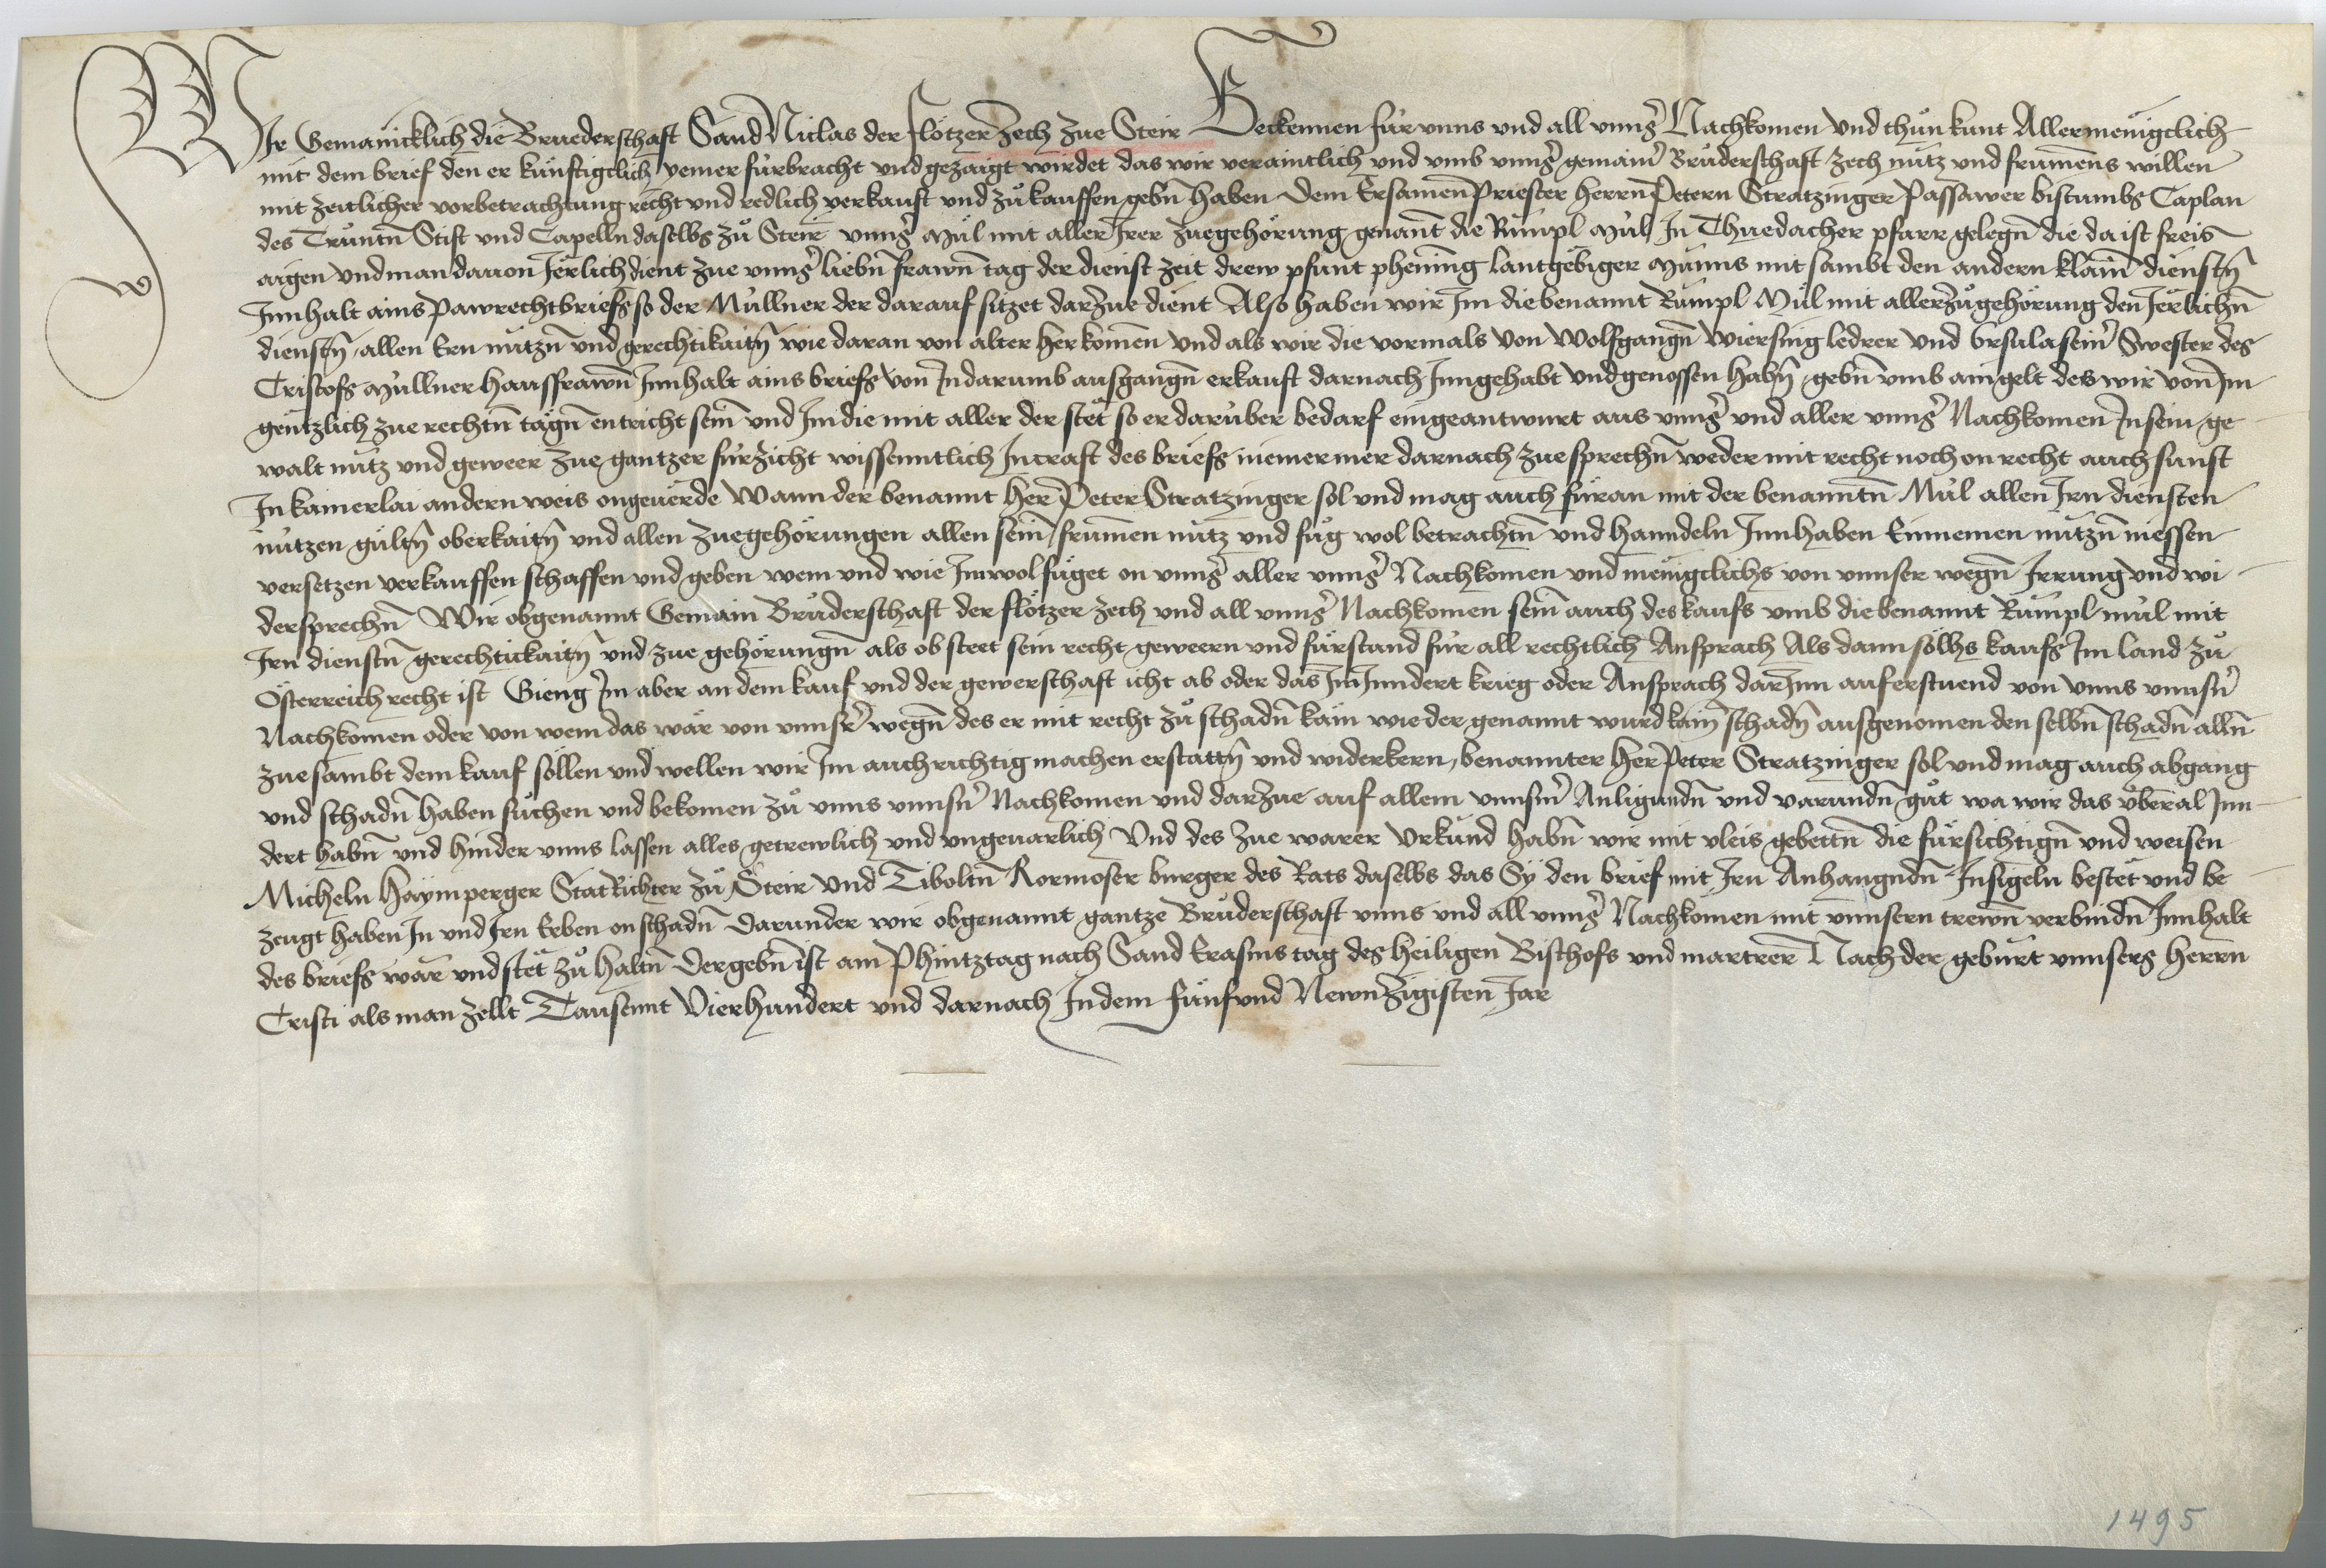 Wir Gemainicklich die Bruederschaft Sand Niclas der flötzer zech zue Steir Bekennen für vnns vnd all vnnser Nachkomen Vnd thůn kunt Allermenigclich
mit dem brief den er kunftigclich yemer fürbracht vnd gezaigt wirdet das wir verainttlich vnd vmb vnnser gemainer Brůderschaft zech nutz vnd frumens willen
mit zeitlicher vorbetrachtung recht vnd redlich verkauft vnd zů kauffen gebn haben dem Ersamen Priester Herrn Petern Stratzinger Passawer bistumbs Caplan
des Truntn Stift vnd Capelln daselbs zů Steir vnnser Mül mit aller Irer zuegehörung genant die Rümpl Mül In Thuedacher pfarr gelegn die da ist freis
aigen vnd man dauon Jerlich dient zue vnnser liebn frawn tag der dienst zeit drew pfunt phening lantgebiger Münns mit sambt den andern klain dienstn
Innhalt ains Pawrechtbriefs so der Müllner der darauf sitzet darzue dient Also haben wir Im die benannt Rümpl Mül mit aller zůgehörung den Jerlichn
dienstn allen Ern nützn vnd gerechtikaitn wie daran von alter herkomen vnd als wir die vormals von Wolfgangn Wiersing ledrer vnd Ursula seiner Swester des
Cristofs Müllner hausfrawn Innhalt ains briefs von In darumb ausgangn erkauft darnach Inngehabt vnd genossen habn gebn vmb ain gelt des wir von Im
gentzlich zue rechtn tägn entricht sein vnd Im die mit aller der stet so er darüber bedarf eingeantwurt aus vnnser vnd aller vnnser Nachkomen In sein ge
walt nutz vnd geweer zue gantzer fürzicht wissenntlich In craft des briefs niemermer darnach zue sprechn weder mit recht noch on recht auch sunst
In kainerlai andern weis ongeuerde Wann der benannt Her Peter Stratzinger sol vnd mag auch füran mit der benanntn Mül allen Irn diensten
nützen gültn oberkaitn vnd allen zuegehörungen allen sein frumen nutz vnd fůg wol betrachtn vnd hanndeln Innhaben Einnemen nützn niessen
versetzen verkauffen schaffen vnd geben wem vnd wie Im wol füget on vnnser aller vnnser Nachkomen vnd menigclichs von vnnser wegn Irrung vnd wi
dersprechn Wir obgenannt Gemain Brůderschaft der flötzer zech vnd all vnnser Nachkomen sein auch des kaufs vmb die benannt Rümpl mül mit
Irn dienstn gerechtickaitn vnd zue gehörungn als ob steet sein recht geweern vnd fürstand für all rechtlich Ansprach Als dann sölhs kaufs Im land zů
Österreich recht ist Gieng Im aber an dem kauf vnd der gewerschaft icht ab oder das Im Inndert krieg oder Ansprach darInn auferstuend von vnns vnnsern
Nachkomen oder von wem das wär von vnnser wegn des er mit recht zů schadn käm wie der genannt wurd kain schadn ausgenomen den selbn schadn alln
zuesambt dem kauf söllen vnd wellen wir Im auch richtig machen erstattn vnd widerkern, benannter Her Peter Stratzinger sol vnd mag auch abgang
vnd schadn haben süchen vnd bekomen zů vnns vnnsern Nachkomen vnd darzue auf allem vnnserm Anligundn vnd varundn gůt wa wir das vberal Inn
dert habn vnd hinder vnns lassen alles getrewlich vnd vngeuarlich Vnd des zue warer Urkund habn wir mit vleis gebettn die fürsichtign vnd weisen
Micheln Haÿmperger StatRichter zů Steir Vnd Tiboltn Kornoser burger des Rats daselbs das Sy den brief mit Irn Anhangndn Insigeln bestet vnd be
zeugt haben In vnd Irn Erben on schadn darunder wir obgenannt gantze Brůderschaft vnns vnd all vnnser Nachkomen mit vnnsern trewn verbindn Innhalt
des briefs war vnd stet zů haltn Der gebn ist am Phintztag nach Sand Erasms tag des heiligen Bischofs vnd martrer Nach der geburt vnnsers Herrn
Cristi als man zellt Tausennt Vierhundert vnd darnach In dem fünf vnd Newnzigisten Jar
1495